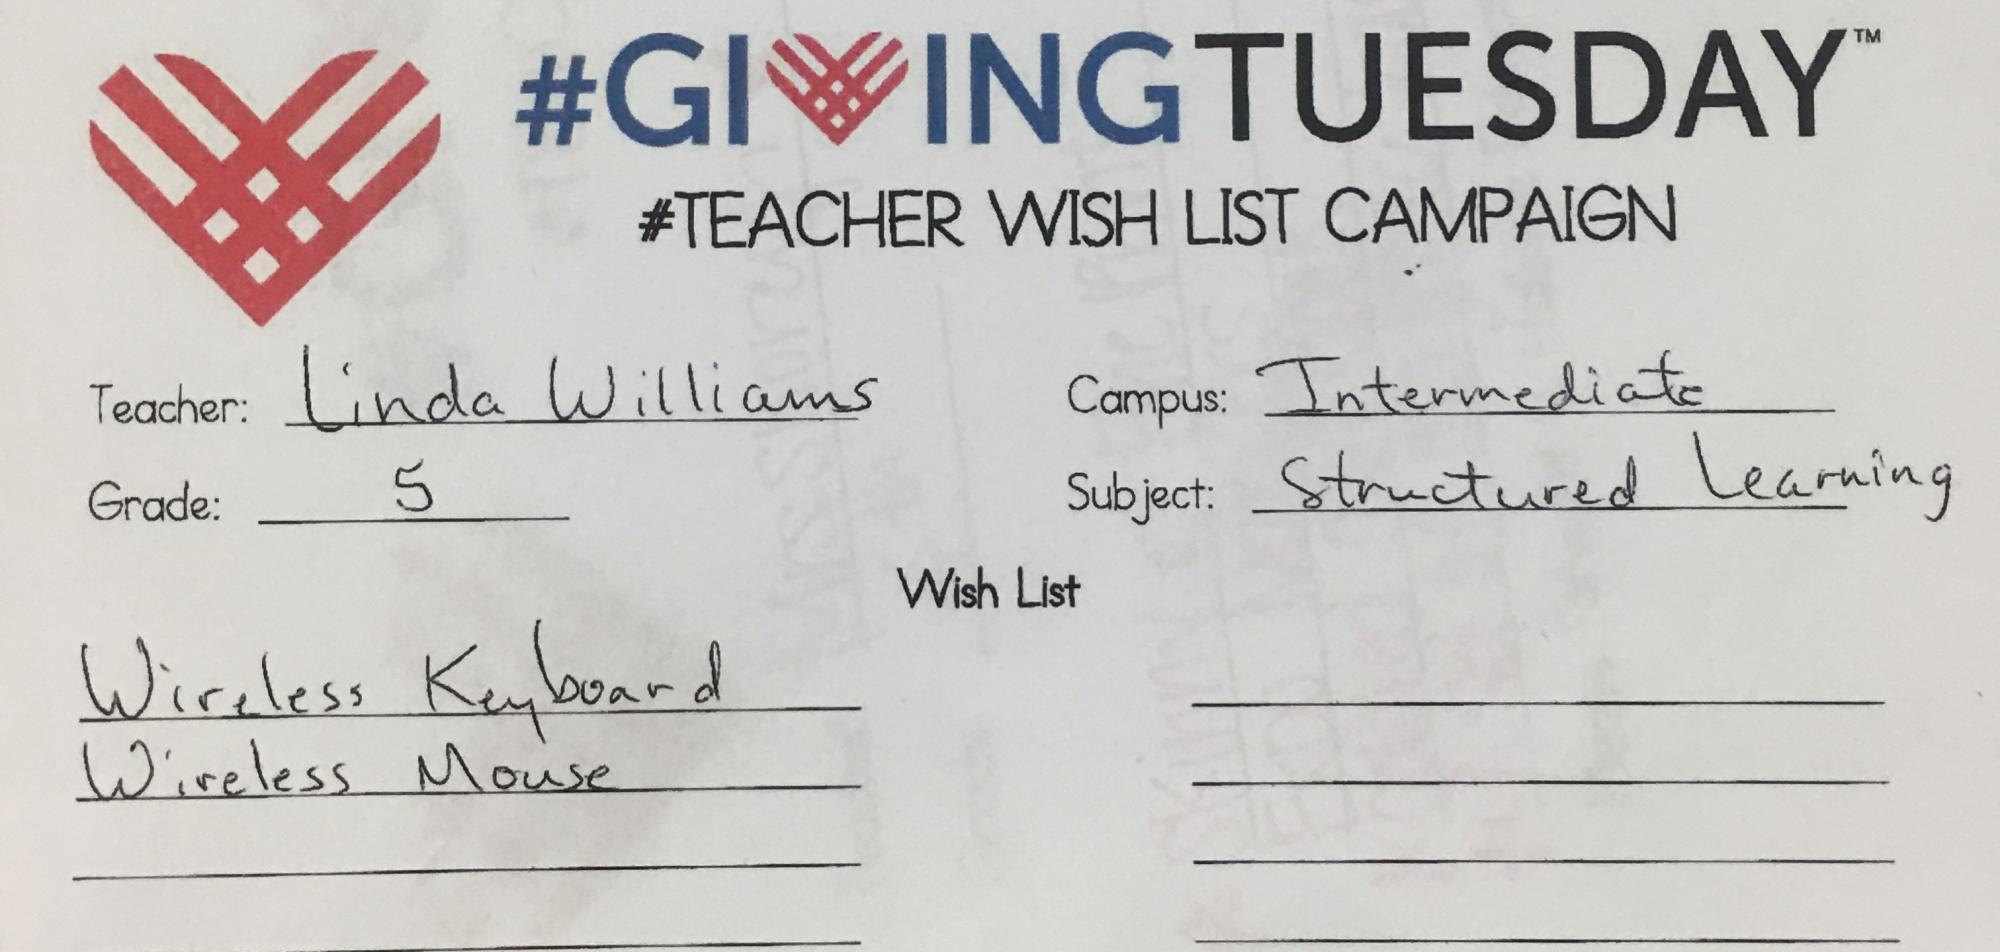 #GIVINGTUESDAY™
#TEACHER WISH LIST CAMPAIGN
Teacher: Linda Williams Campus: Intermediate
Grade: 5 Subject: Structured Learning
Wish List
Wireless Keyboard
Wireless Mouse